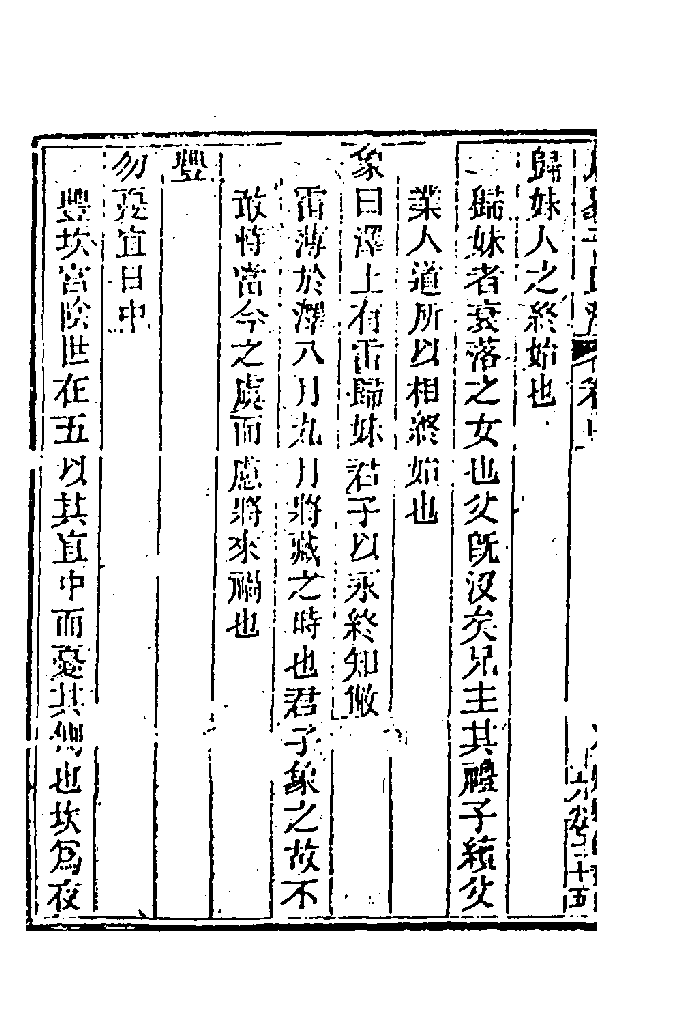 歸妹人之終始也
歸妹者衰落之女也父旣沒矣兄主其禮子續父
業人道所以相終始也
象曰澤上有雷歸妹君子以永終知敝
雷薄於澤八月九月將藏之時也君子象之故不
敢恃當今之虞而慮將來禍也
豐
勿憂宜日中
豐坎宮陰世在五以其宜中而憂其側也坎爲夜